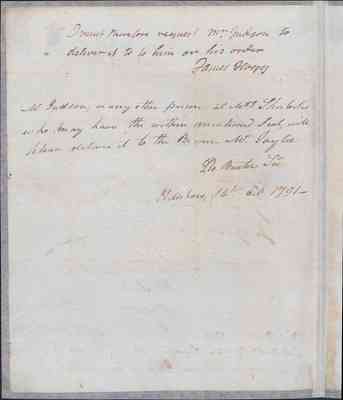 I must therefore request Mr Judson to
deliver it to him or his order
James
Mr Judson, or any other person at Mrs
who may have the within mentioned will
please deliver it to the Bearer Mr Taylor
14th Oct 1791